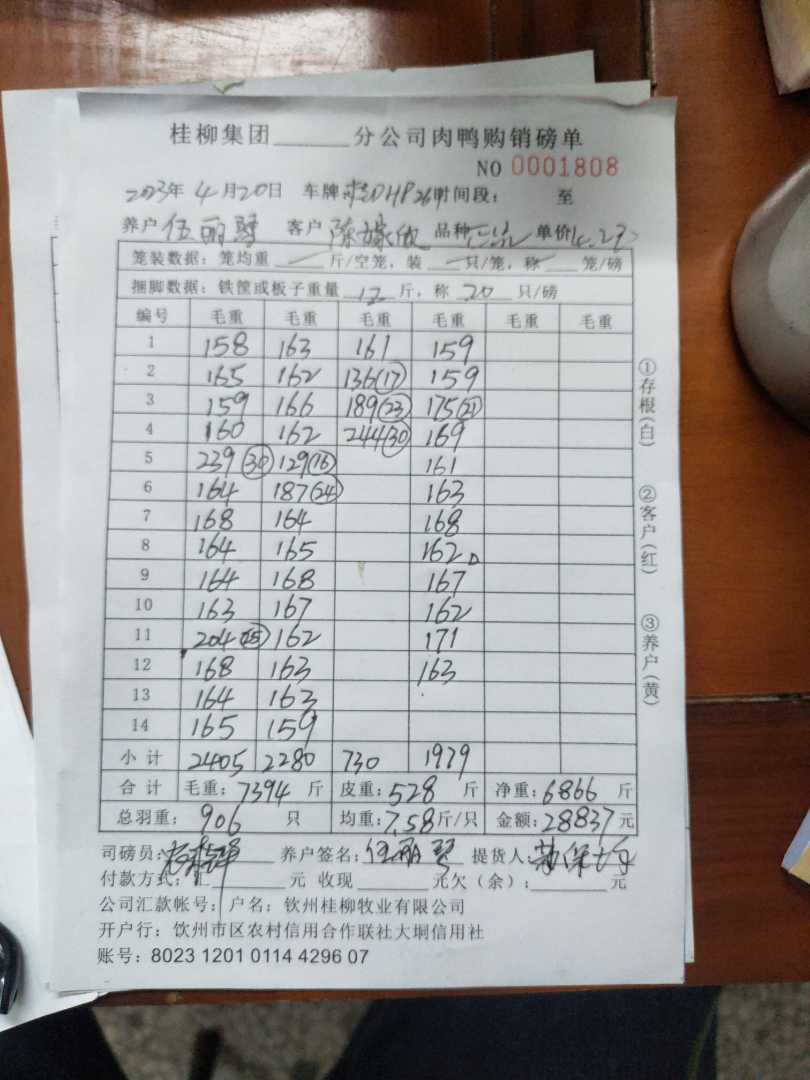 桂柳集团______分公司肉鸭购销磅单
NO 0001808
2023年4月20日 车牌 时间段: 至
养户 伍丽琴 客户 陈 品种 单价
笼装数据: 笼均重____斤/空笼,装____只/笼,称____笼/磅
捆脚数据: 铁筐或板子重量 12 斤,称 20 只/磅
编号 毛重 毛重 毛重 毛重 毛重 毛重
1 158 163 161 159
2 165 162 136(17) 159
3 159 166 189(23) 175(21)
4 160 162 244(30) 169
5 239(30) 129(16) 161
6 164 187(24) 163
7 168 164 168
8 164 165 162
9 164 168 167
10 163 167 162
11 204(25) 162 171
12 168 163 163
13 164 163
14 165 159
小计 2405 2280 730 1979
合计 毛重:7394 斤 皮重:528 斤 净重:6866 斤
总羽重: 906 只 均重:7.58斤/只 金额:28837元
司磅员: 养户签名:伍丽琴 提货人:
付款方式:汇______元 收现______元欠(余):______元
公司汇款帐号: 户名: 钦州桂柳牧业有限公司
开户行: 钦州市区农村信用合作联社大垌信用社
账号: 8023 1201 0114 4296 07
①存根(白)
②客户(红)
③养户(黄)